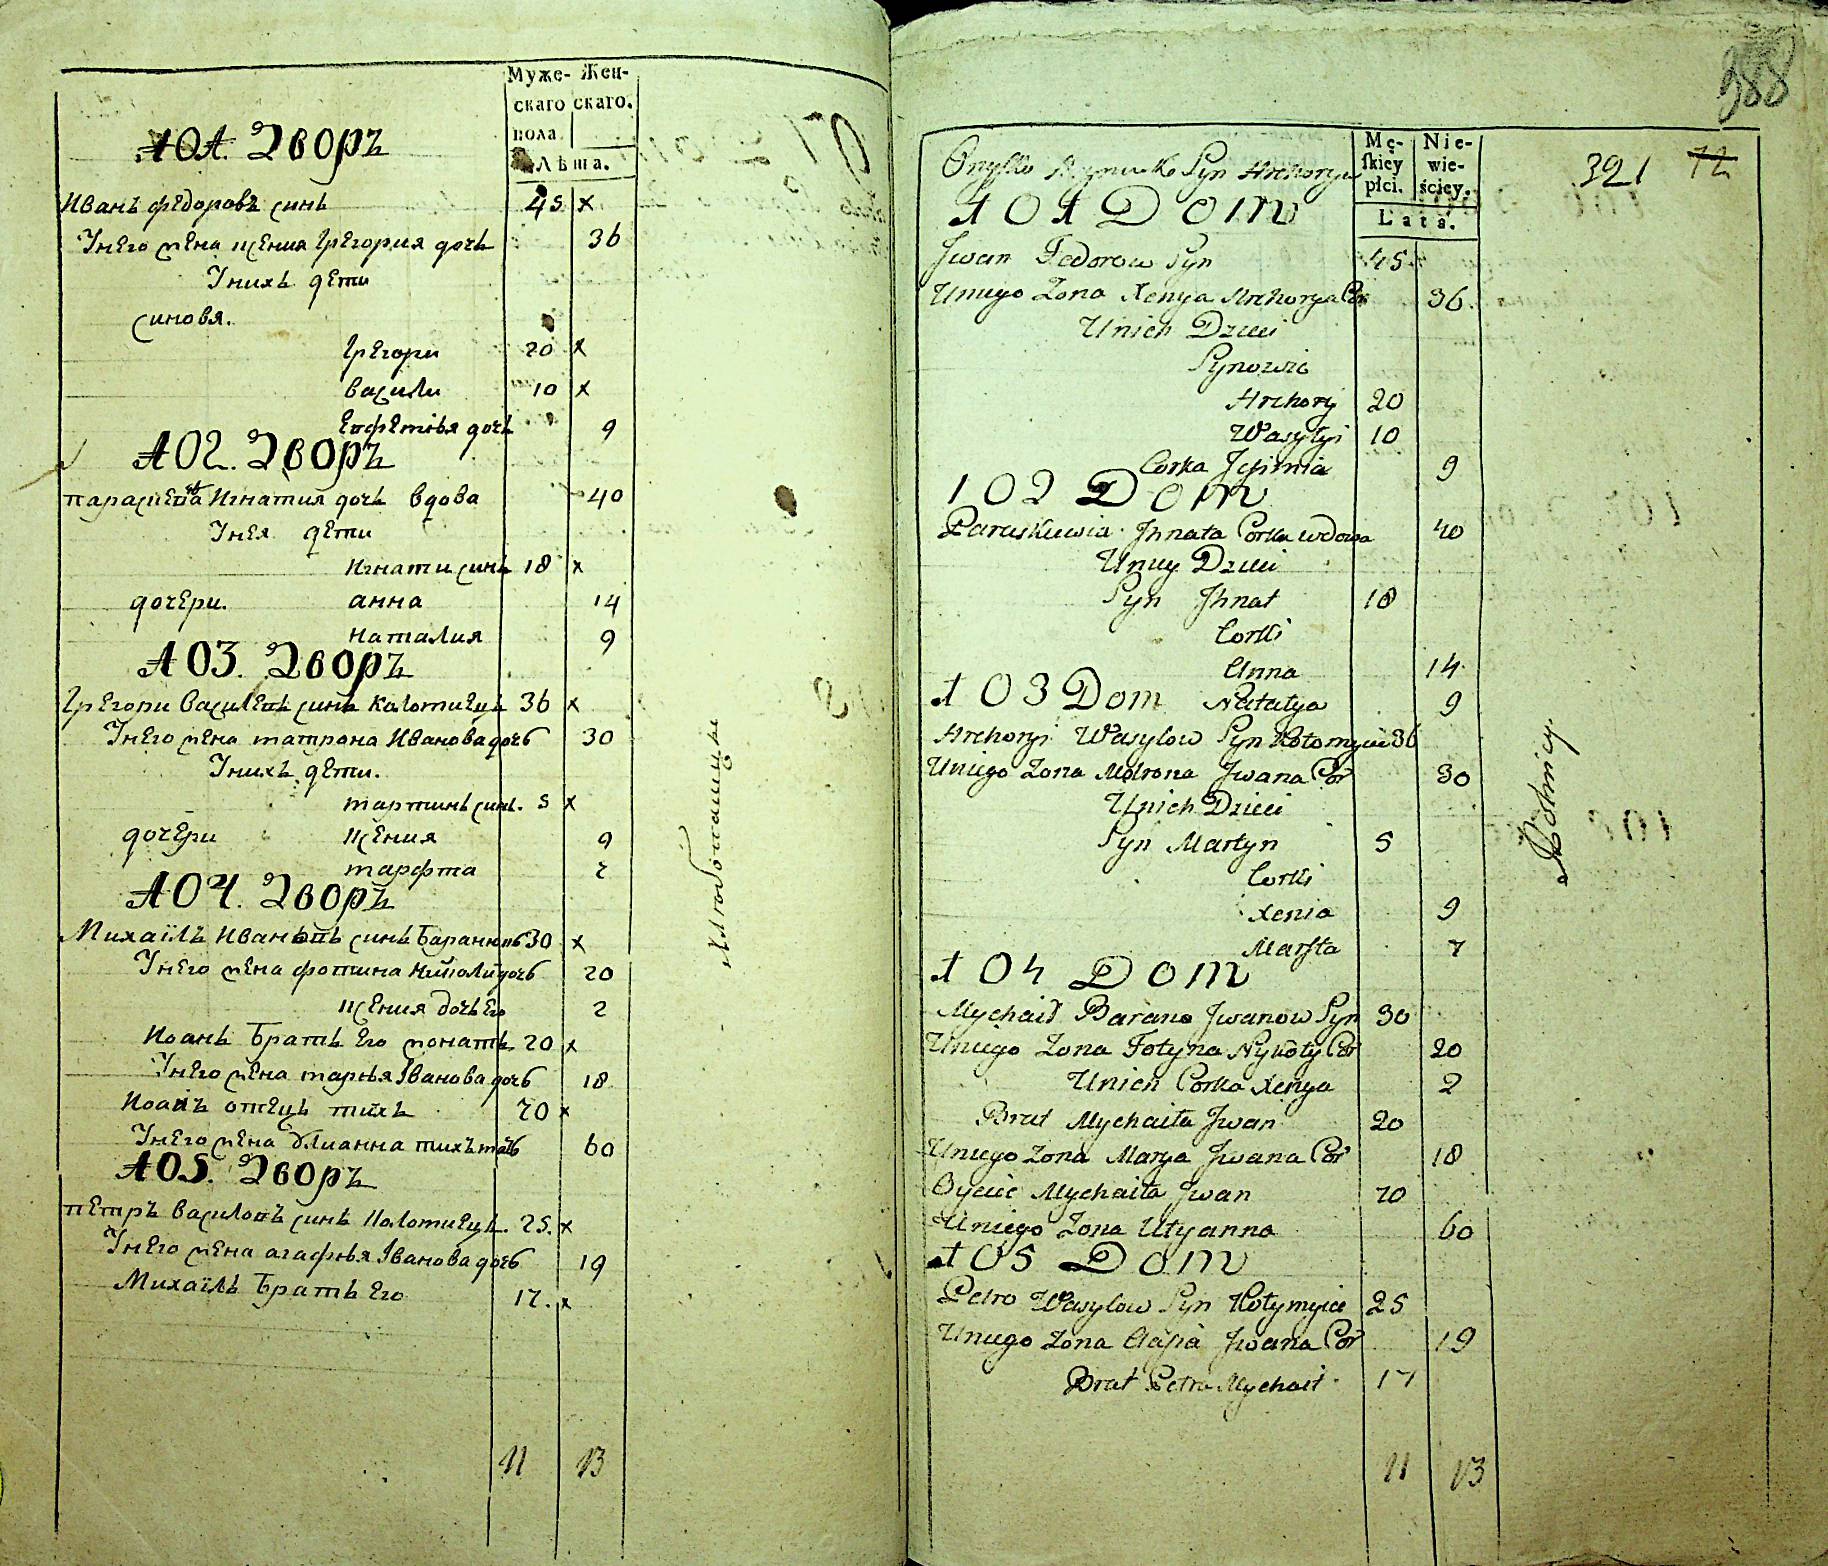 Муже- Жен-
скаго скаго.
пола
Лѣта.
101. Дворъ
Иванъ федоровъ синъ 45 x
Унего жена ксения Григория дочь 36
Унихъ дети
синовя.
Григори 20 x
васили 10 x
Евфемія дочь 9
102. Дворъ
параскева Игнатия дочь вдова 40
Унея дети
Игнати синъ 18 x
дочери. анна 14
наталия 9
103. Дворъ
Григори василевъ синъ Коломиецъ 36 x
Унего жена матрона Иванова дочь 30
Унихъ дети.
мартинъ синъ. 5 x
дочери ксения 9
марфта 7
104. Дворъ
Михаілъ Ивановъ синъ Баранювъ 30 x
Унего жена фотина николи дочь 20
ксения дочь Его 2
Иоанъ Братъ Его жонатъ 20 x
Унего жена маря Іванова дочь 18
Иоанъ отецъ тихъ 70 x
Унего жена Улианна тихъ мать 60
105. Дворъ
петръ василовъ синъ Коломиецъ. 25. x
Унего жена агафия Іванова дочь 19
Михаілъ Братъ Его 17. x
11 13
388
321 72
Mę- Nie-
skiey wie-
płci. ściey.
Lata.
Onyśko Syn Hrehorya
101 Dom
Jwan Fedorow Syn 45
Uniego Zona Xenya Hrehorya Cor 36
Unich Dzieci
Synowie
Hrehory 20
Wasylyi 10
Corka Jefimia 9
102 Dom
Paraskiewia Jhnata Corka wdowa 40
Uniey Dzieci
Syn Jhnat 18
Corki
Anna 14
103 Dom Natalya 9
Hrehoryi Wasylow Syn Kołomyiec 36
Uniego Zona Motrona Jwana Cor 30
Unich Dzieci
Syn Martyn 5
Corki
Xenia 9
Marfta 7
104 Dom
Mychaił Barano Jwanow Syn 30
Uniego Zona Fotyna Nykoły Cor 20
Unich Corka Xenya 2
Brat Mychaiła Jwan 20
Uniego Zona Marya Jwana Cor 18
Oyciec Mychaiła Jwan 70
Uniego Zona Ulyanna 60
105 Dom
Petro Wasylow Syn Kołymyiec 25
Uniego Zona Aafia Jwana Cor 19
Brat Petra Mychaił 17
11 13
Rolnicy